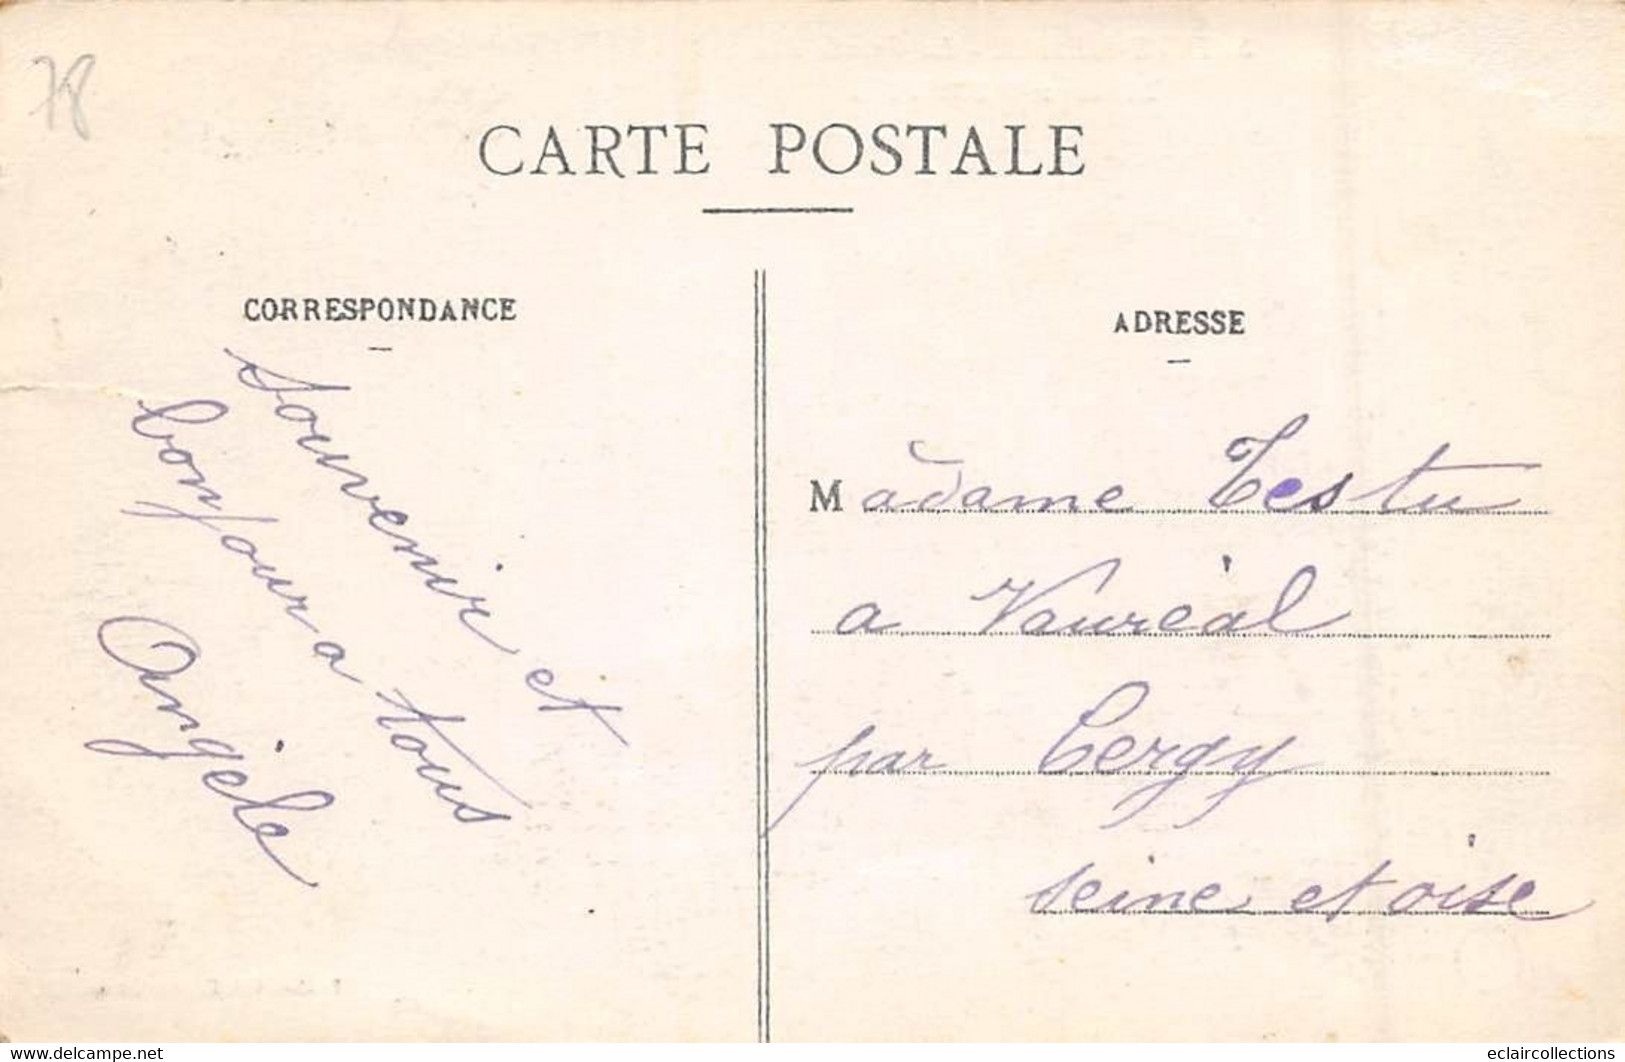 78
CARTE POSTALE
CORRESPONDANCE
souvenir et
bonjour a tous
Angèle
ADRESSE
Madame Testu
a Vauréal
par Cergy
seine et oise
www.delcampe.net
eclaircollections